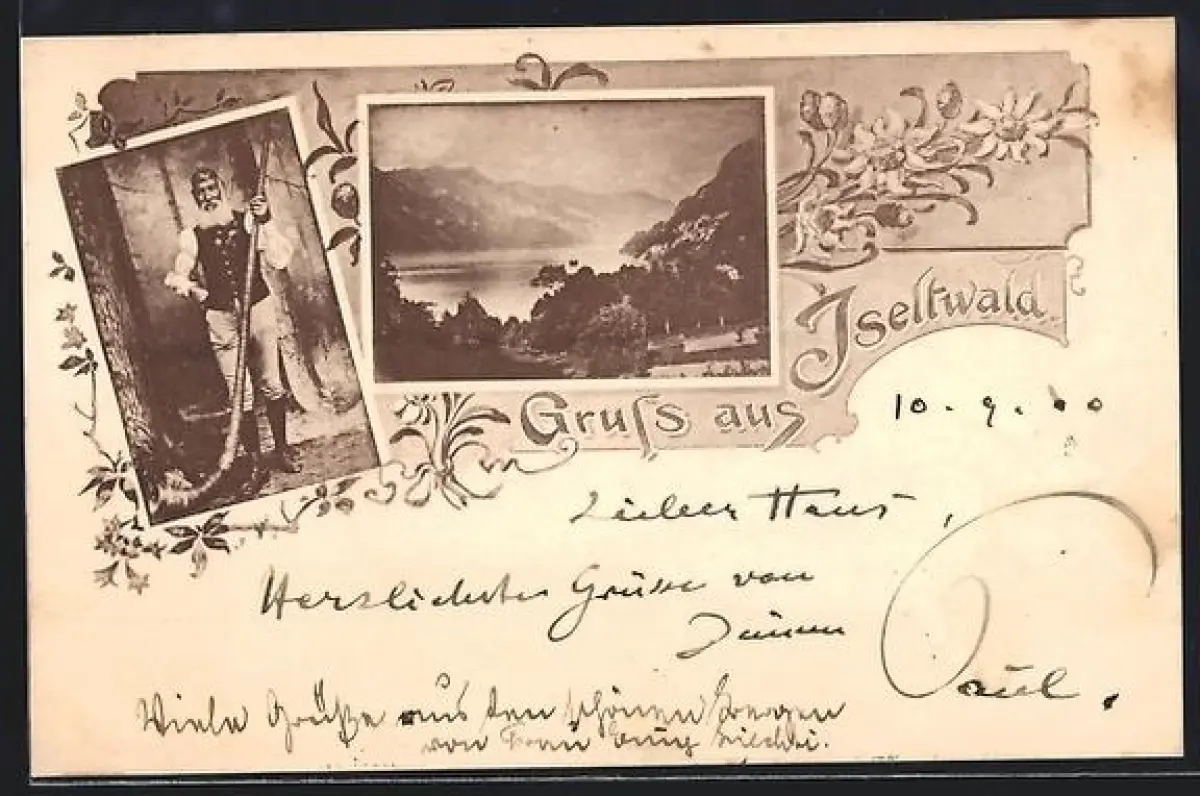 Gruss aus Iseltwald.
10. 9. 00
Lieber Hans,
Herzlichste Grüsse von
Deinem
Paul.
Viele Grüße aus den schönen Bergen
von Frau